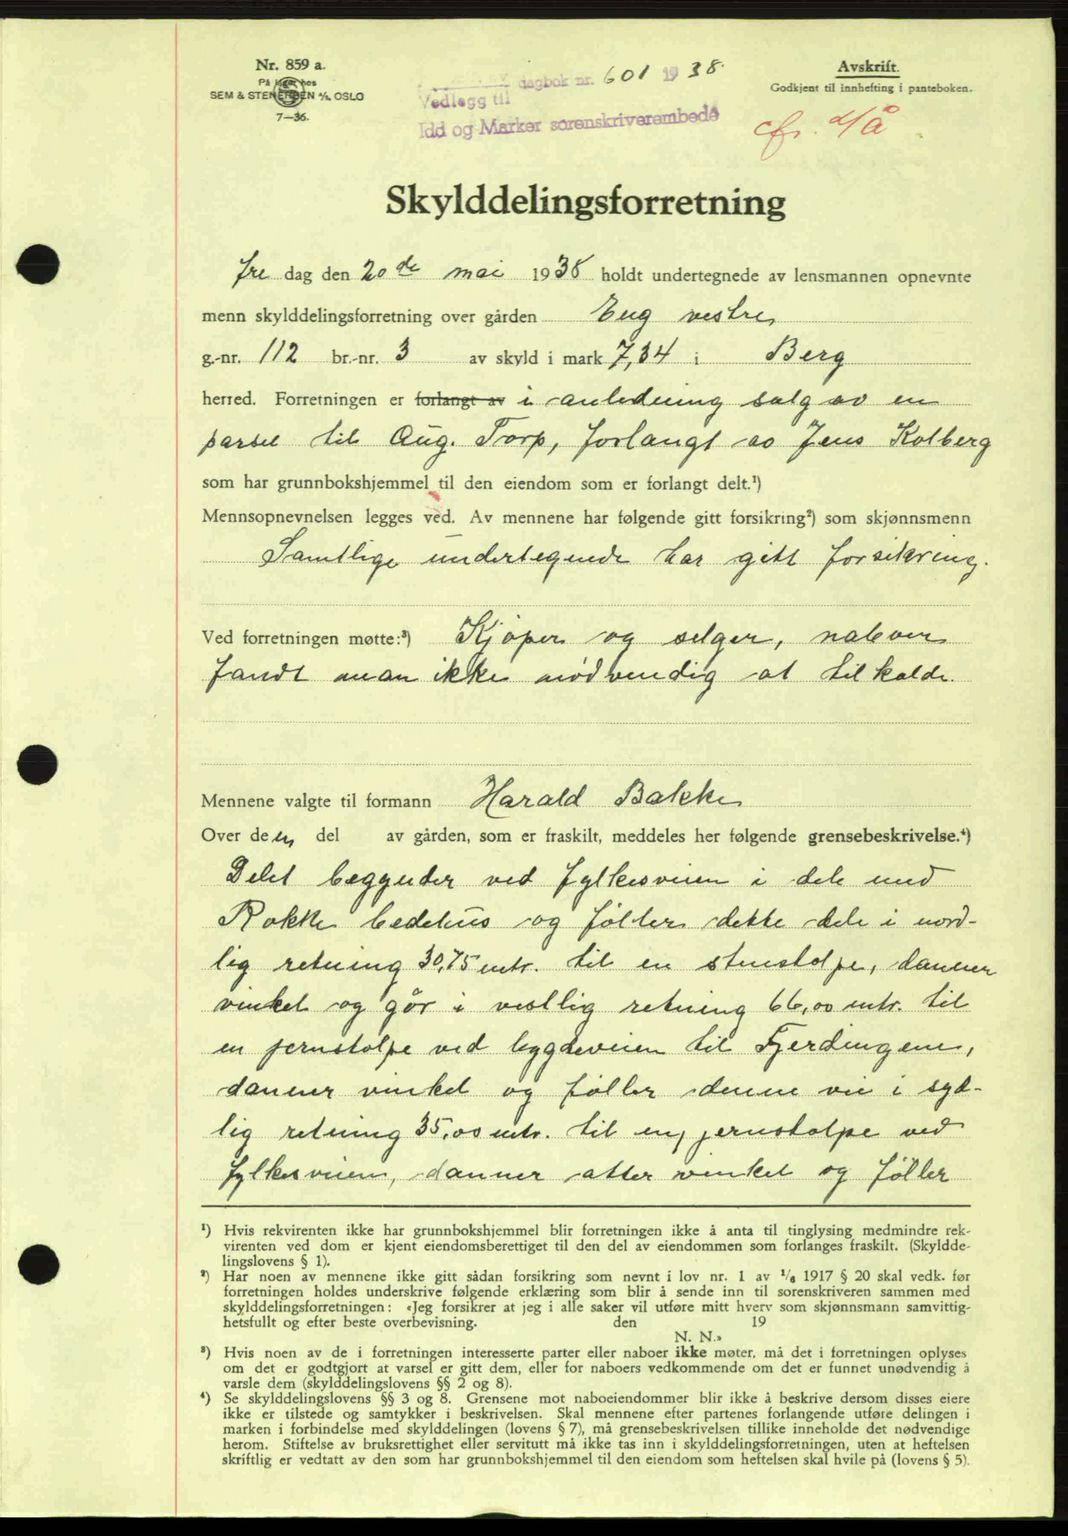 Nr. 859 a.
På lager hos
SEM & STENERSEN A/S, OSLO
7—36.
dagbok nr. 601 1938.
Vedlegg til
Idd og Marker sorenskriverembede
Avskrift.
Godkjent til innhefting i panteboken.
cfr.
Skylddelingsforretning
fre dag den 20de mai 1938 holdt undertegnede av lensmannen opnevnte
menn skylddelingsforretning over gården Eng vestre
g.-nr. 112 br.-nr. 3 av skyld i mark 7,34 i Berg
herred. Forretningen er forlangt av i anledning salg av en
parsel til Aug. Torp, forlangt av Jens Kolberg
som har grunnbokshjemmel til den eiendom som er forlangt delt.¹)
Mennsopnevnelsen legges ved. Av mennene har følgende gitt forsikring²) som skjønnsmenn
Samtlige undertegnede har gitt forsikring.
Ved forretningen møtte:³) Kjøper og selger, naboer
fandt man ikke nødvendig at tilkalde.
Mennene valgte til formann Harald Bakke
Over deen del av gården, som er fraskilt, meddeles her følgende grensebeskrivelse.⁴)
Delet begynder ved fylkesveien i dele med
Rokke bedehus og føller dette dele i nord-
lig retning 30,75 mtr. til en stenstolpe, danner
vinkel og går i vestlig retning 66,00 mtr. til
en jernstolpe ved bygdeveien til Fjerdingene,
danner vinkel og føller denne vei i syd-
lig retning 35,00 mtr. til en jernstolpe ved
fylkesveien, danner atter vinkel og føller
¹) Hvis rekvirenten ikke har grunnbokshjemmel blir forretningen ikke å anta til tinglysing medmindre rek-
virenten ved dom er kjent eiendomsberettiget til den del av eiendommen som forlanges fraskilt. (Skyldde-
lingslovens § 1).
²) Har noen av mennene ikke gitt sådan forsikring som nevnt i lov nr. 1 av 1/6 1917 § 20 skal vedk. før
forretningen holdes underskrive følgende erklæring som blir å sende inn til sorenskriveren sammen med
skylddelingsforretningen: «Jeg forsikrer at jeg i alle saker vil utføre mitt hverv som skjønnsmann samvittig-
hetsfullt og efter beste overbevisning. den 19
N. N.»
³) Hvis noen av de i forretningen interesserte parter eller naboer ikke møter, må det i forretningen oplyses
om det er godtgjort at varsel er gitt dem, eller for naboers vedkommende om det er funnet unødvendig å
varsle dem (skylddelingslovens §§ 2 og 8).
⁴) Se skylddelingslovens §§ 3 og 8. Grensene mot naboeiendommer blir ikke å beskrive dersom disses eiere
ikke er tilstede og samtykker i beskrivelsen. Skal mennene efter partenes forlangende utføre delingen i
marken i forbindelse med skylddelingen (lovens § 7), må grensebeskrivelsen tillike inneholde det nødvendige
herom. Stiftelse av bruksrettighet eller servitutt må ikke tas inn i skylddelingsforretningen, uten at heftelsen
skriftlig er vedtatt av den som har grunnbokshjemmel til den eiendom som heftelsen skal hvile på (lovens § 5).